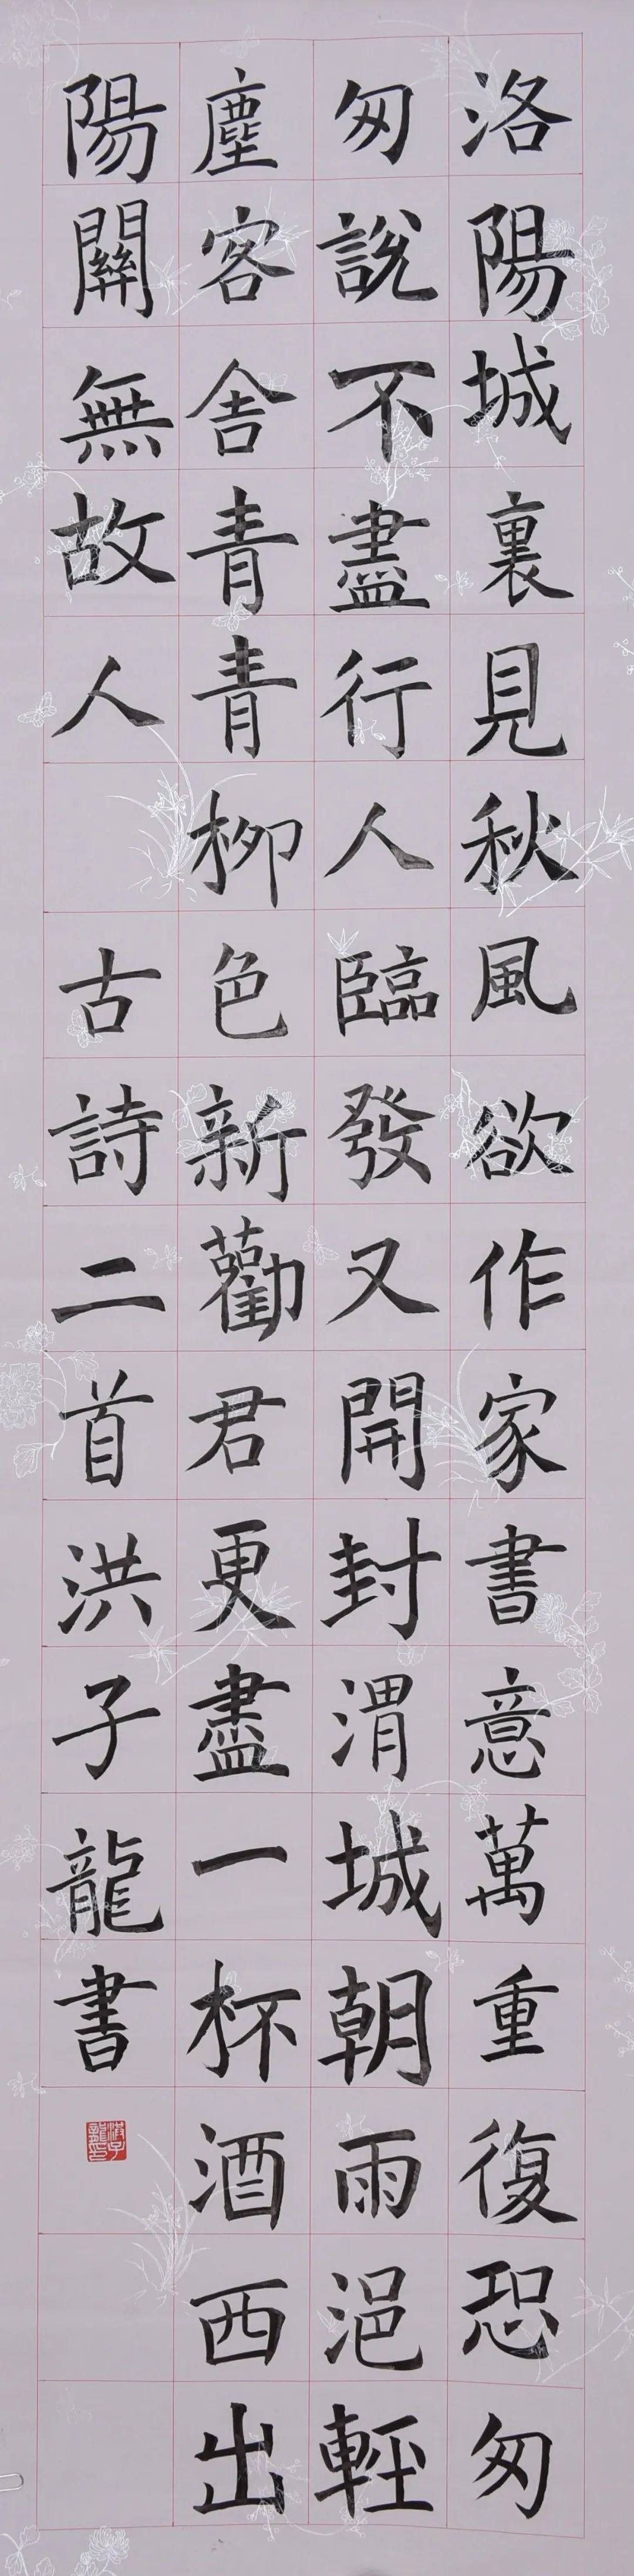 洛陽城裏見秋風欲作家書意萬重復恐匆
匆說不盡行人臨發又開封渭城朝雨浥輕
塵客舍青青柳色新勸君更盡一杯酒西出
陽關無故人 古詩二首洪子龍書